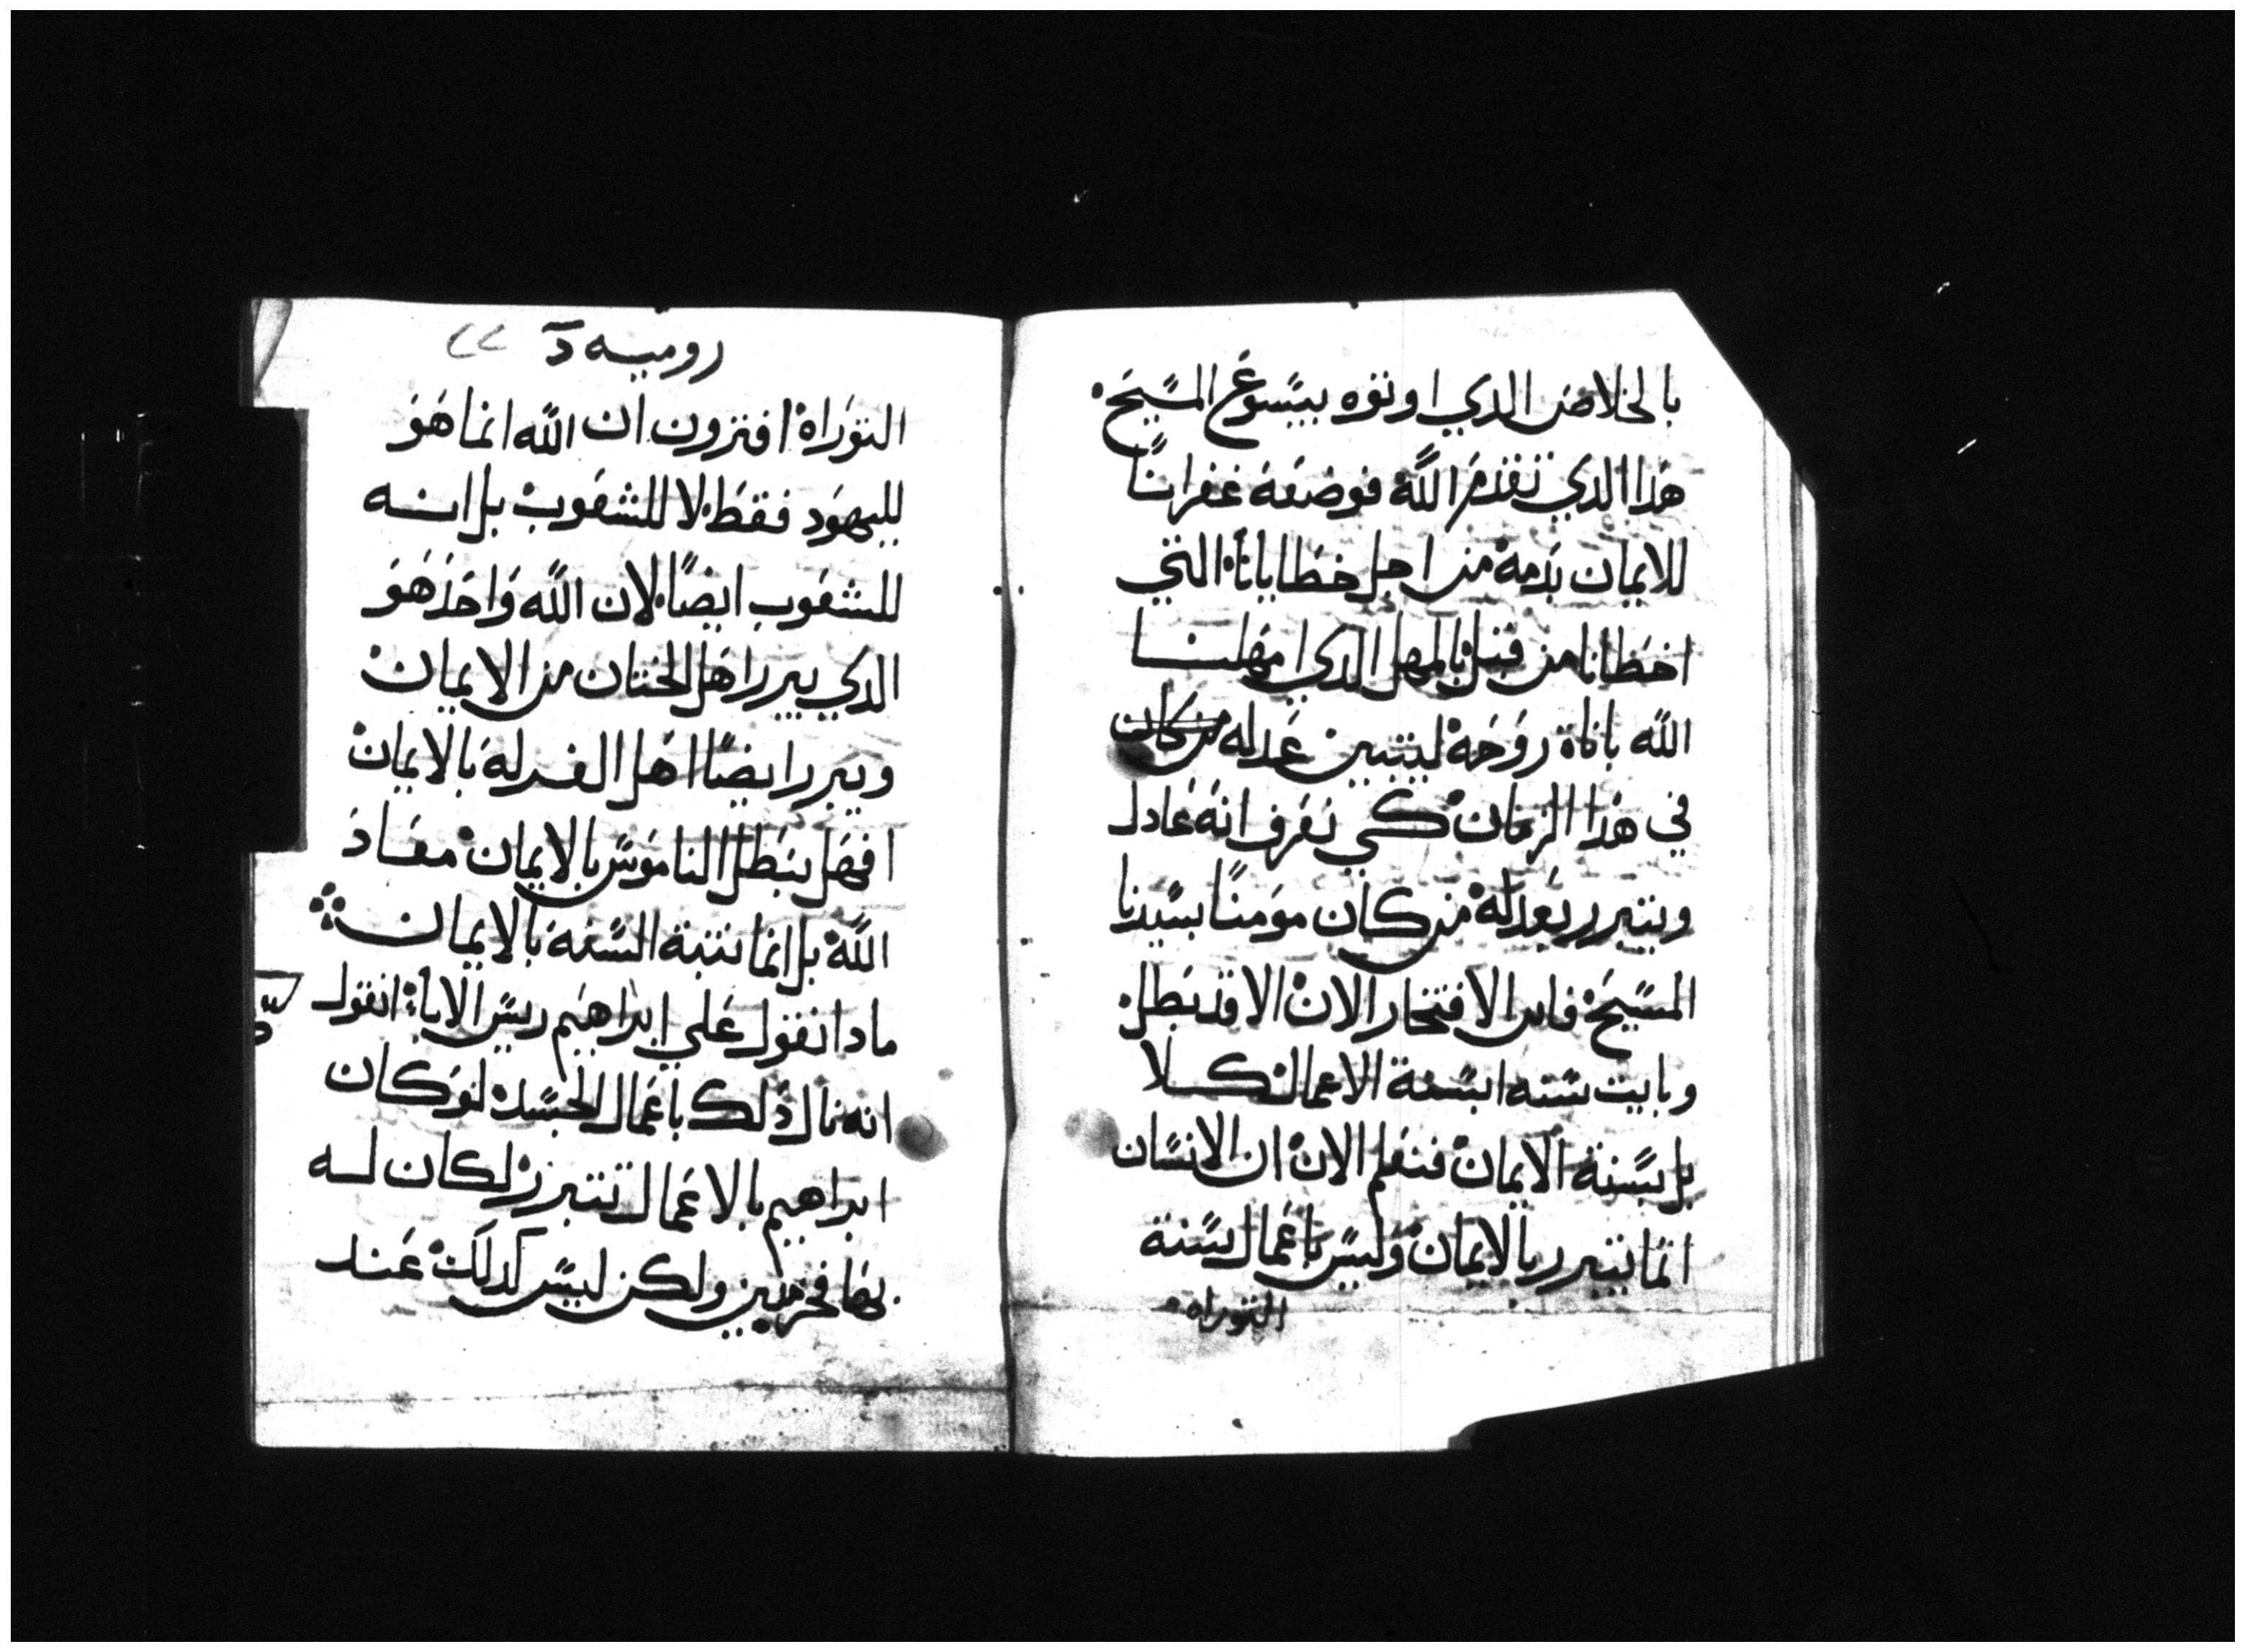 بالخلاص الدي اوتوه بيسوع المسيح.
هدا الدي تقدم الله فوضعه غفرانًا
للايمان بدمه من اجل خطايانا. التي
اخطانا من قبل بالمهل الدي امهلنا
الله باناة روحه ليتبين عدله من كان
في هدا الزمان كي نعرف انه عادل
ويتبرر بعدله من كان مومنًا بسيدنا
المسيح فاين الافتخار الان الا قد بطل
وبايت سنه ابسنة الاعمال كلا
بل بسنة الايمان فنعلم الان ان الانسان
انما يتبرر بالايمان وليس باعمال سنة
التوراه.
روميه د ٢٢
التوراه افترون ان الله انما هو
لليهود فقط. لا للشعوب بل انه
للشعوب ايضًا. لان الله واحد هو
الدي يبرر اهل الختان من الايمان
ويبرر ايضًا اهل الغرلة بالايمان
افهل نبطل الناموس بالايمان معاد
الله بل انما نثبة السنة بالايمان
مادا نقول علي ابراهيم ريس الاباء انقول
انه نال دلك باعمال الجسد لو كان
ابراهيم بالاعمال تبرر لكان له
بها فخر ولكن ليس كدلك عند